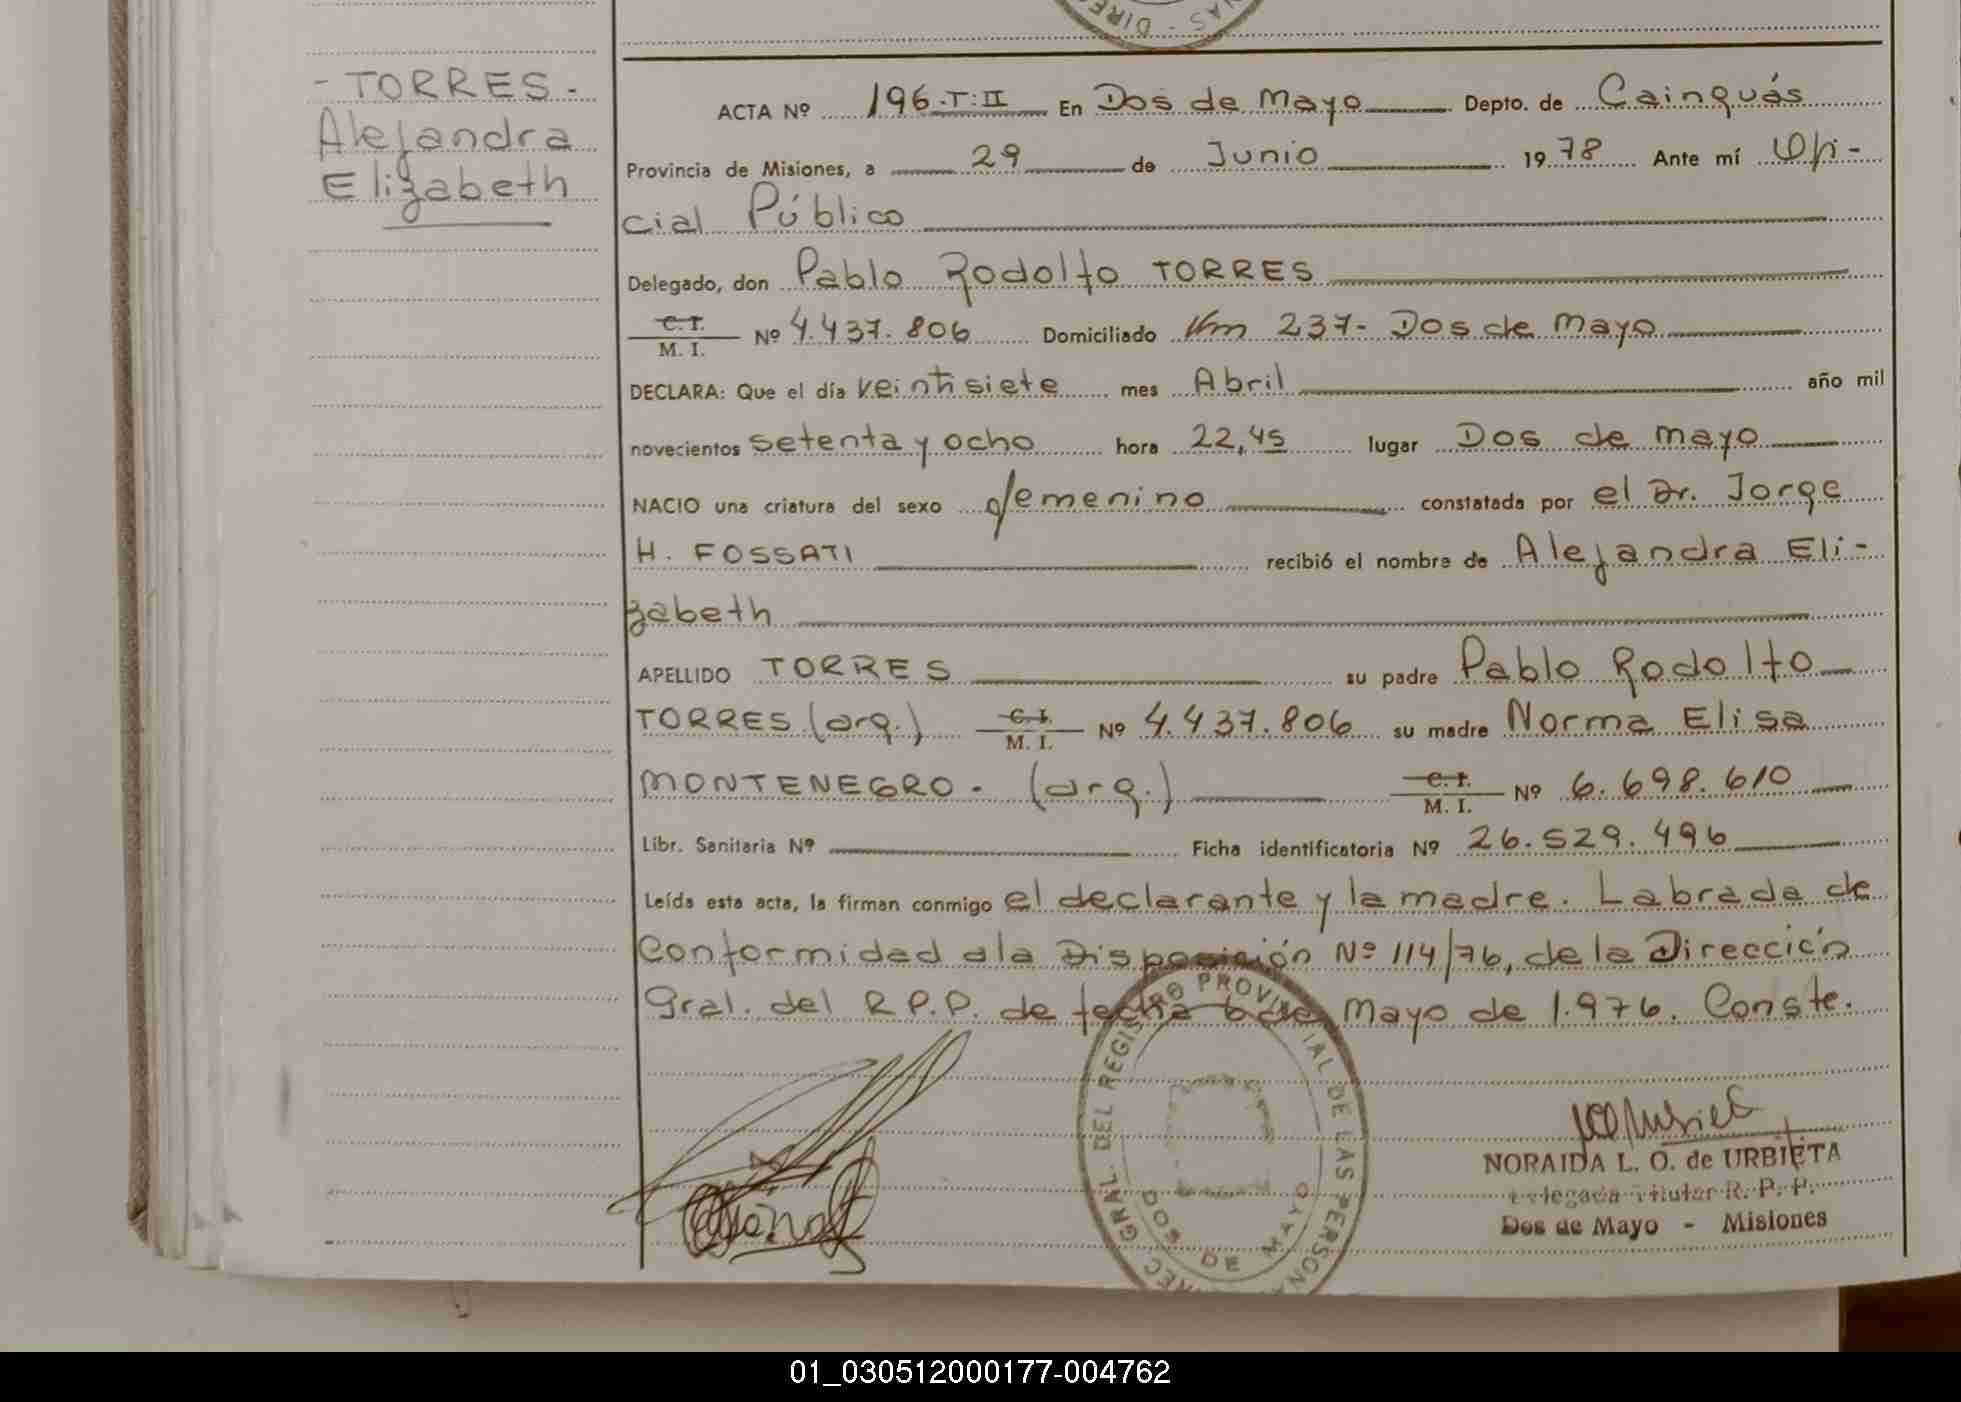 DIREC NAS
- TORRES -
Alejandra
Elizabeth
ACTA Nº 196-T:II En Dos de Mayo Depto. de Cainguás
Provincia de Misiones, a 29 de Junio 1978 Ante mí Ofi-
cial Público
Delegado, don Pablo Rodolfo TORRES
C.I. / M. I. Nº 4.437.806 Domiciliado Km 237- Dos de Mayo
DECLARA: Que el día veintisiete mes Abril año mil
novecientos setenta y ocho hora 22,45 lugar Dos de Mayo
NACIO una criatura del sexo femenino constatada por el Dr. Jorge
H. FOSSATI recibió el nombre de Alejandra Eli-
zabeth
APELLIDO TORRES su padre Pablo Rodolfo
TORRES (arg.) C.I. / M. I. Nº 4.437.806 su madre Norma Elisa
MONTENEGRO. (arg.) C.I. / M. I. Nº 6.698.610
Libr. Sanitaria Nº Ficha identificatoria Nº 26.529.496
Leída esta acta, la firman conmigo el declarante y la madre. Labrada de
Conformidad a la Disposición Nº 114/76, de la Dirección
Gral. del R.P.P. de fecha 6 de Mayo de 1.976. Conste.
DIREC GRAL. DEL REGISTRO PROVINCIAL DE LAS PERSONAS
DOS DE MAYO
NORAIDA L. O. de URBIETA
Delegada Titular R. P. P.
Dos de Mayo - Misiones
01_030512000177-004762